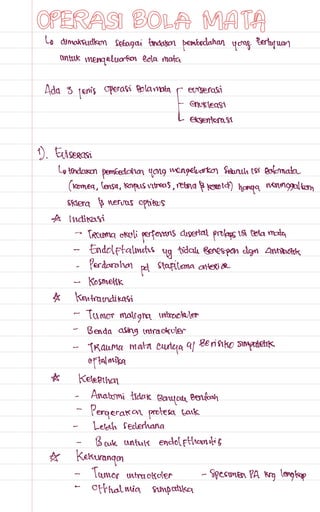 OPERASI BOLA MATA
↳ dimaksudkan sebagai tindakan pembedahan yang bertujuan
untuk mengeluarkan Bola mata
Ada 3 jenis operasi Bolamata
eviserasi
Enukleasi
eksenterasi
1). Eviserasi
↳ tindakan pembedahan yang mengeluarkan seluruh isi Bolamata
(kornea, lensa, korpus vitreus, retina & koroid) hanya meninggalkan
sklera & nervus optikus
☆ Indikasi
- Trauma okuli perforans disertai prolaps isi Bola mata
- Endoftalmitis yg tidak Berespon dgn Antibiotik
- Perdarahan pd stafiloma anterior
- Kosmetik
☆ Kontraindikasi
- Tumor maligna intraokuler
- Benda asing intraokuler
- Trauma mata curiga Berisiko simpatetik
oftalmika
☆ Kelebihan
- Anatomi tidak Banyak Berubah
- Pergerakan protesa baik
- Lebih sederhana
- Baik untuk endofthalmitis
☆ Kekurangan
- Tumor intraokuler
- Spesimen PA krg lengkap
- Ofthalmia simpatika